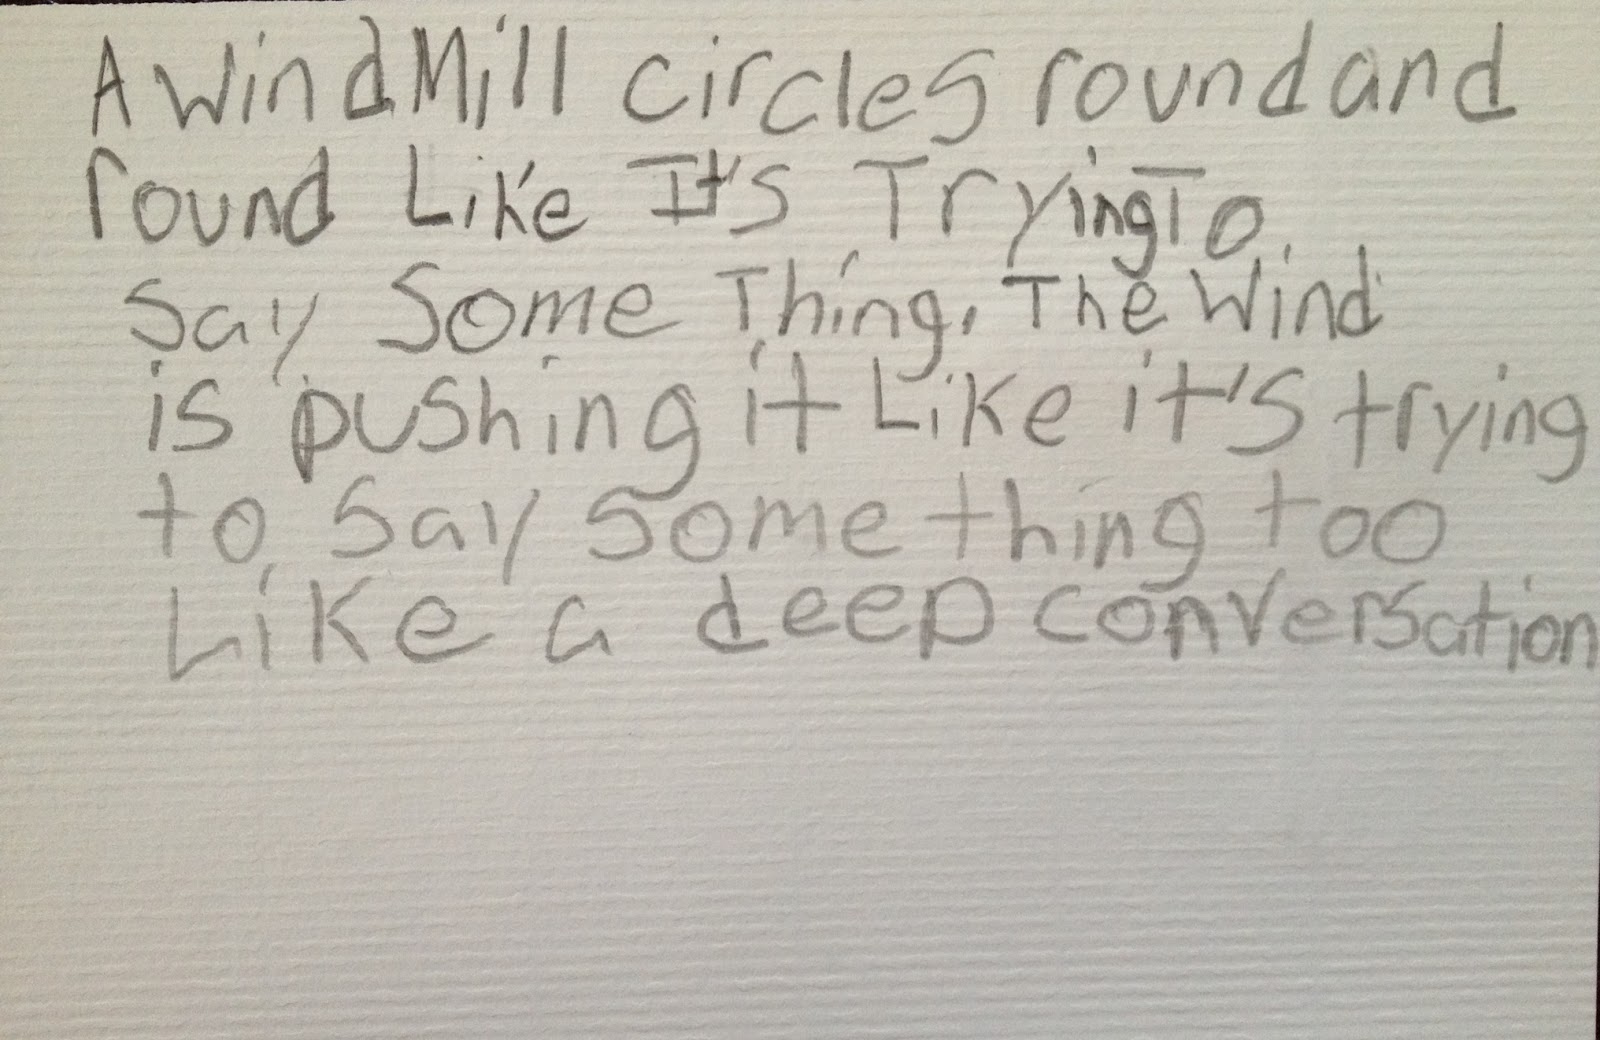 A WindMill circles round and
round Like It's Trying To
Say Some Thing. The Wind
is pushing it Like it's trying
to say something too
Like a deep conversation